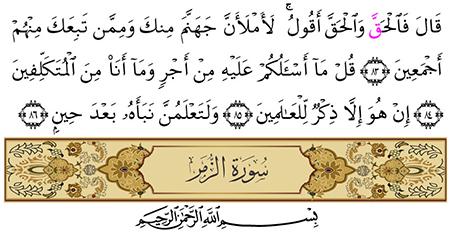 قَالَ فَالْحَقَّ وَالْحَقَّ أَقُولُ ۚ لَأَمْلَأَنَّ جَهَنَّمَ مِنكَ وَمِمَّن تَبِعَكَ مِنْهُمْ
أَجْمَعِينَ ﴿٨٣﴾ قُلْ مَآ أَسْـَٔلُكُمْ عَلَيْهِ مِنْ أَجْرٍ وَمَآ أَنَا۠ مِنَ الْمُتَكَلِّفِينَ
﴿٨٤﴾ إِنْ هُوَ إِلَّا ذِكْرٌ لِّلْعَالَمِينَ ﴿٨٥﴾ وَلَتَعْلَمُنَّ نَبَأَهُۥ بَعْدَ حِينٍۭ ﴿٨٦﴾
سُورَةُ الزُّمَرِ
بِسْمِ اللَّهِ الرَّحْمَٰنِ الرَّحِيمِ